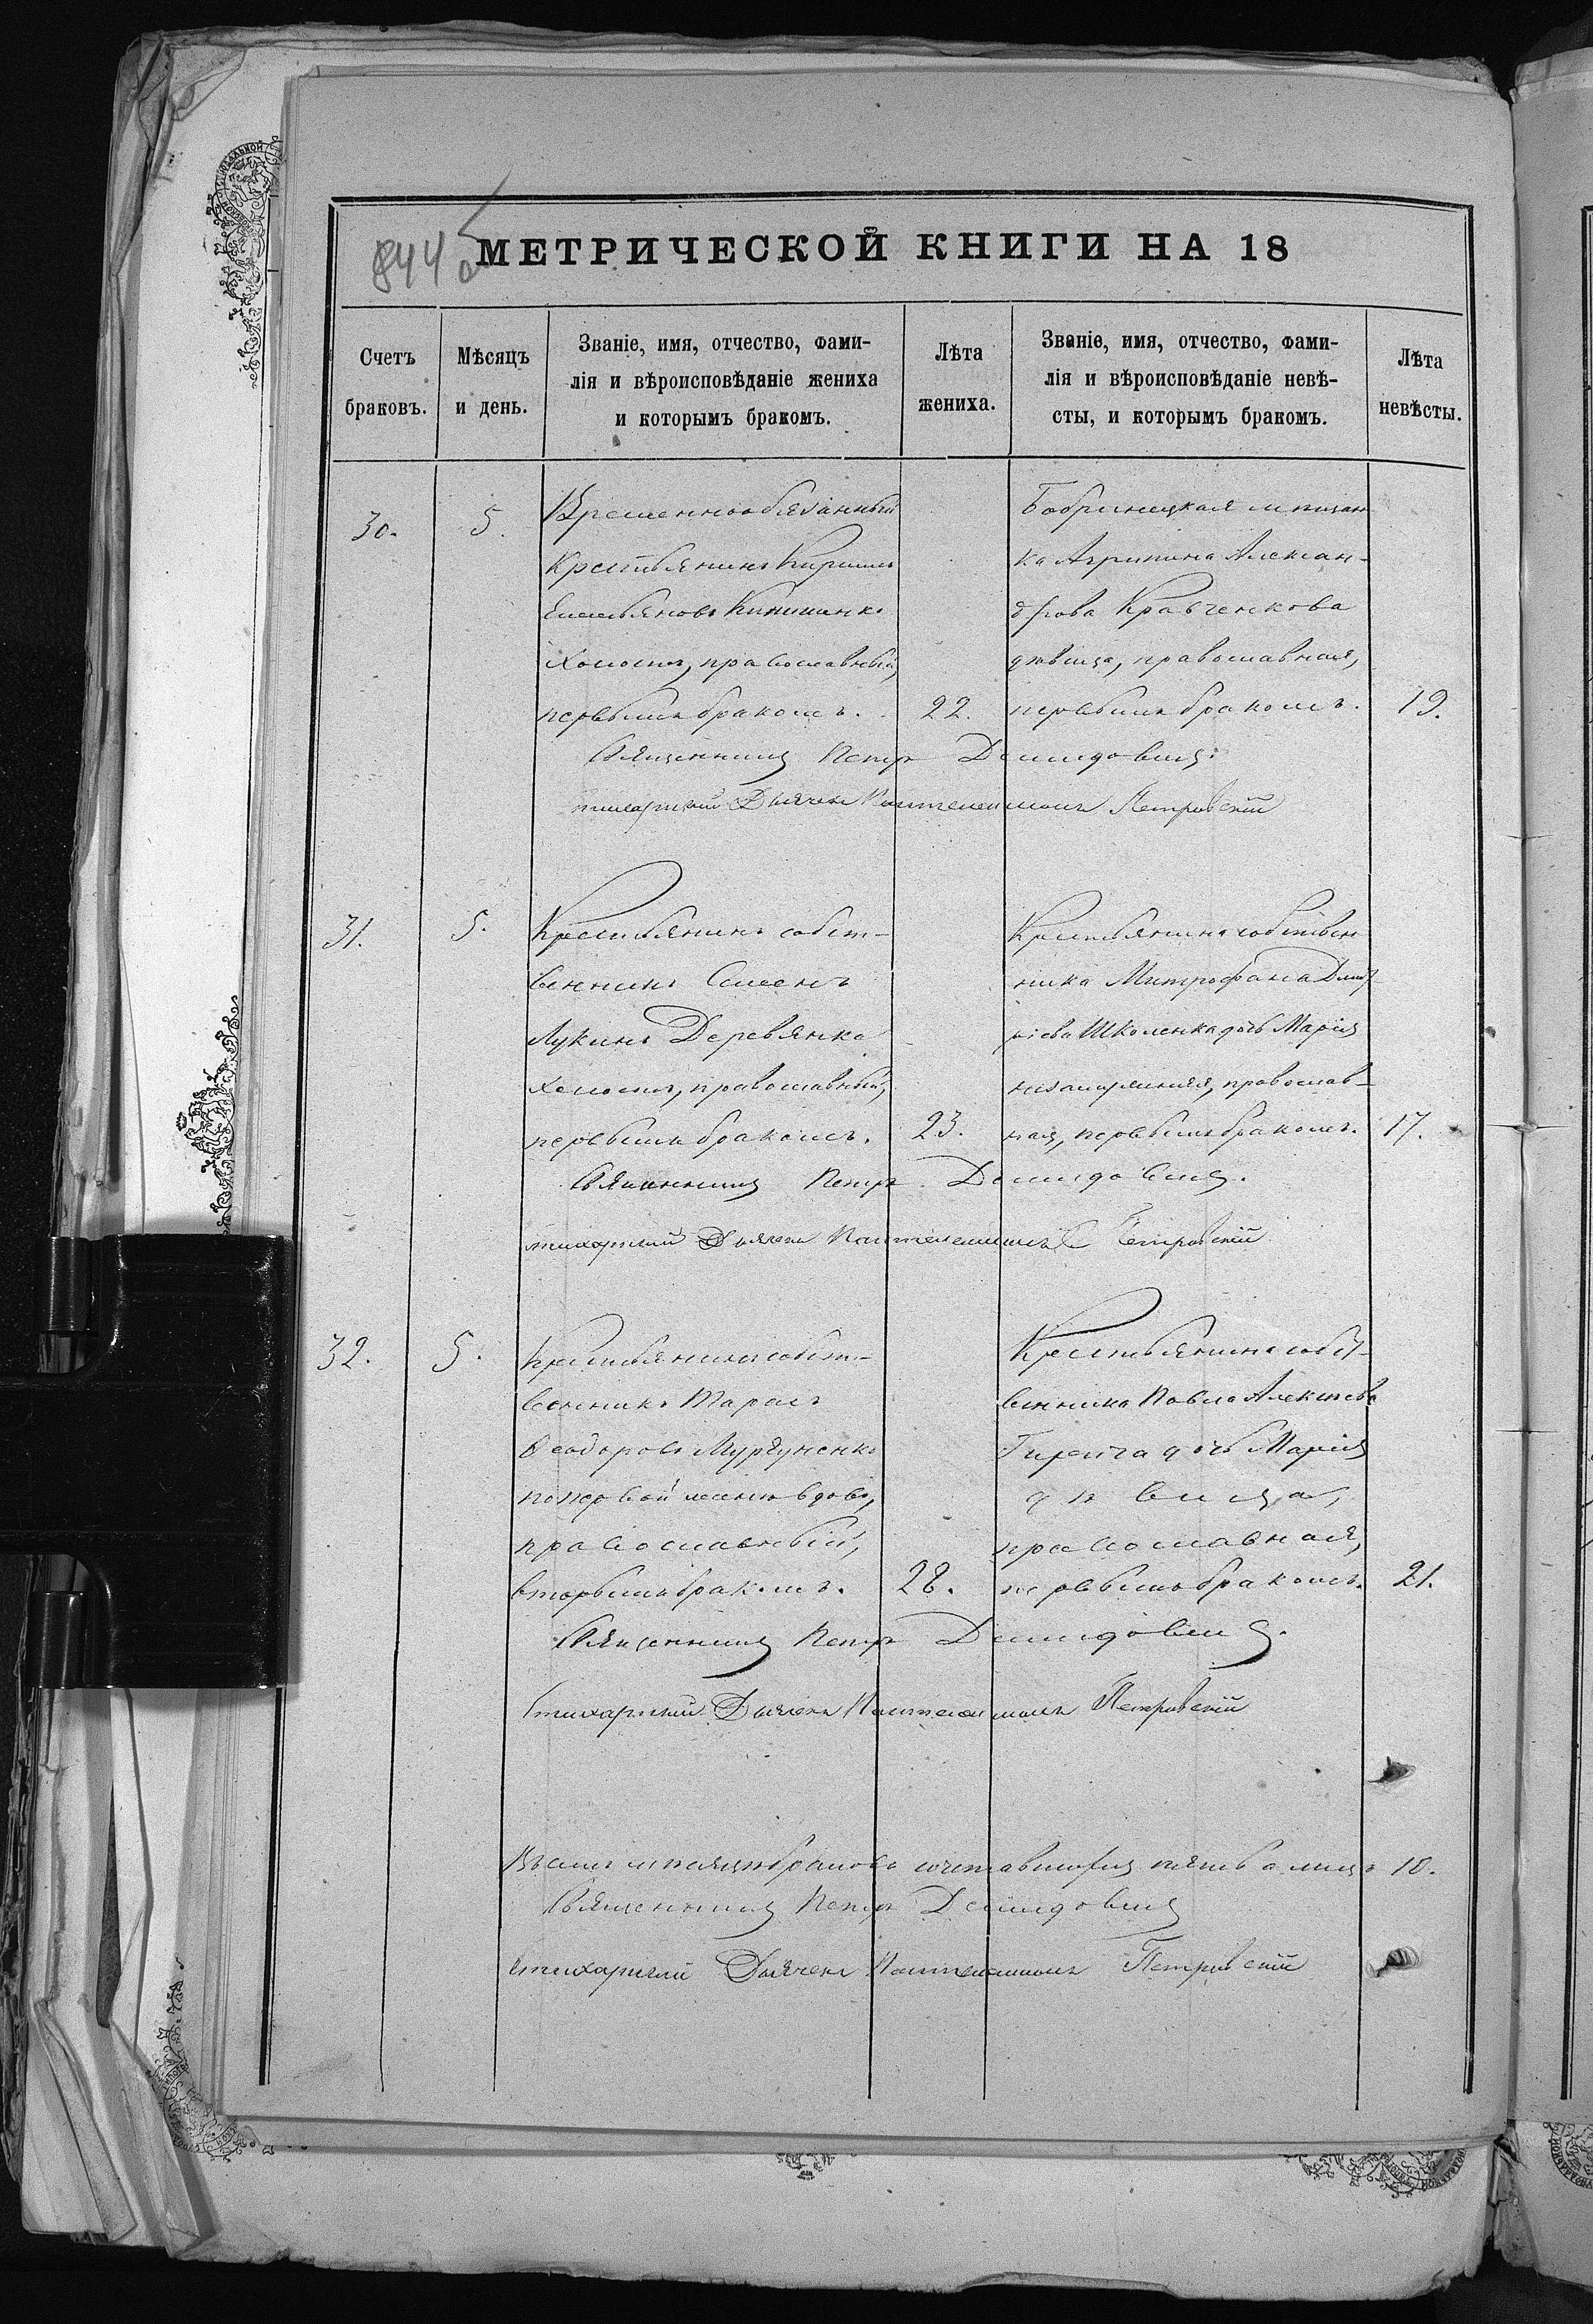 844 об
МЕТРИЧЕСКОЙ КНИГИ НА 18
Счетъ браковъ.
Мѣсяцъ и день.
Званіе, имя, отчество, фами-
лія и вѣроисповѣданіе жениха
и которымъ бракомъ.
Лѣта жениха.
Званіе, имя, отчество, фами-
лія и вѣроисповѣданіе невѣ-
сты, и которымъ бракомъ.
Лѣта невѣсты.
30.
5.
Временнообязанный
Крестьянинъ Кириллъ
Емельяновъ
холостъ, православный,
первымъ бракомъ.
22.
Бобринецкая мѣщан
ка Агрипина Алексан-
дрова Кравченкова
дѣвица, православная,
первымъ бракомъ.
19.
Священникъ Петръ Демидовичъ.
стихарный Дьячекъ Пантелеимонъ Петровскій
31.
5.
Крестьянинъ собст-
венникъ Симеонъ
Лукинъ Деревянко
холостъ, православный,
первымъ бракомъ.
23.
Крестьянина собствен
ника Митрофана Дмит
ріева Школенка дочь Марія
незамужняя, православ-
ная, первымъ бракомъ.
17.
Священникъ Петръ Демидовичъ.
стихарный Дьячекъ Пантелеимонъ Петровскій
32.
5.
Крестьянинъ собст-
венникъ Тарасъ
Ѳеодоровъ
по первой женѣ вдовъ,
православный,
вторымъ бракомъ.
28.
Крестьянина собст-
венника Павла Алексѣева
дочь Марія
дѣвица,
православная,
первымъ бракомъ.
21.
Священникъ Петръ Демидовичъ.
Стихарный Дьячекъ Пантелеимонъ Петровскій
Въ семъ мѣсяцѣ браковъ сочетавшихся пять а лицъ 10.
Священникъ Петръ Демидовичъ
Стихарный Дьячекъ Пантелеимонъ Петровскій